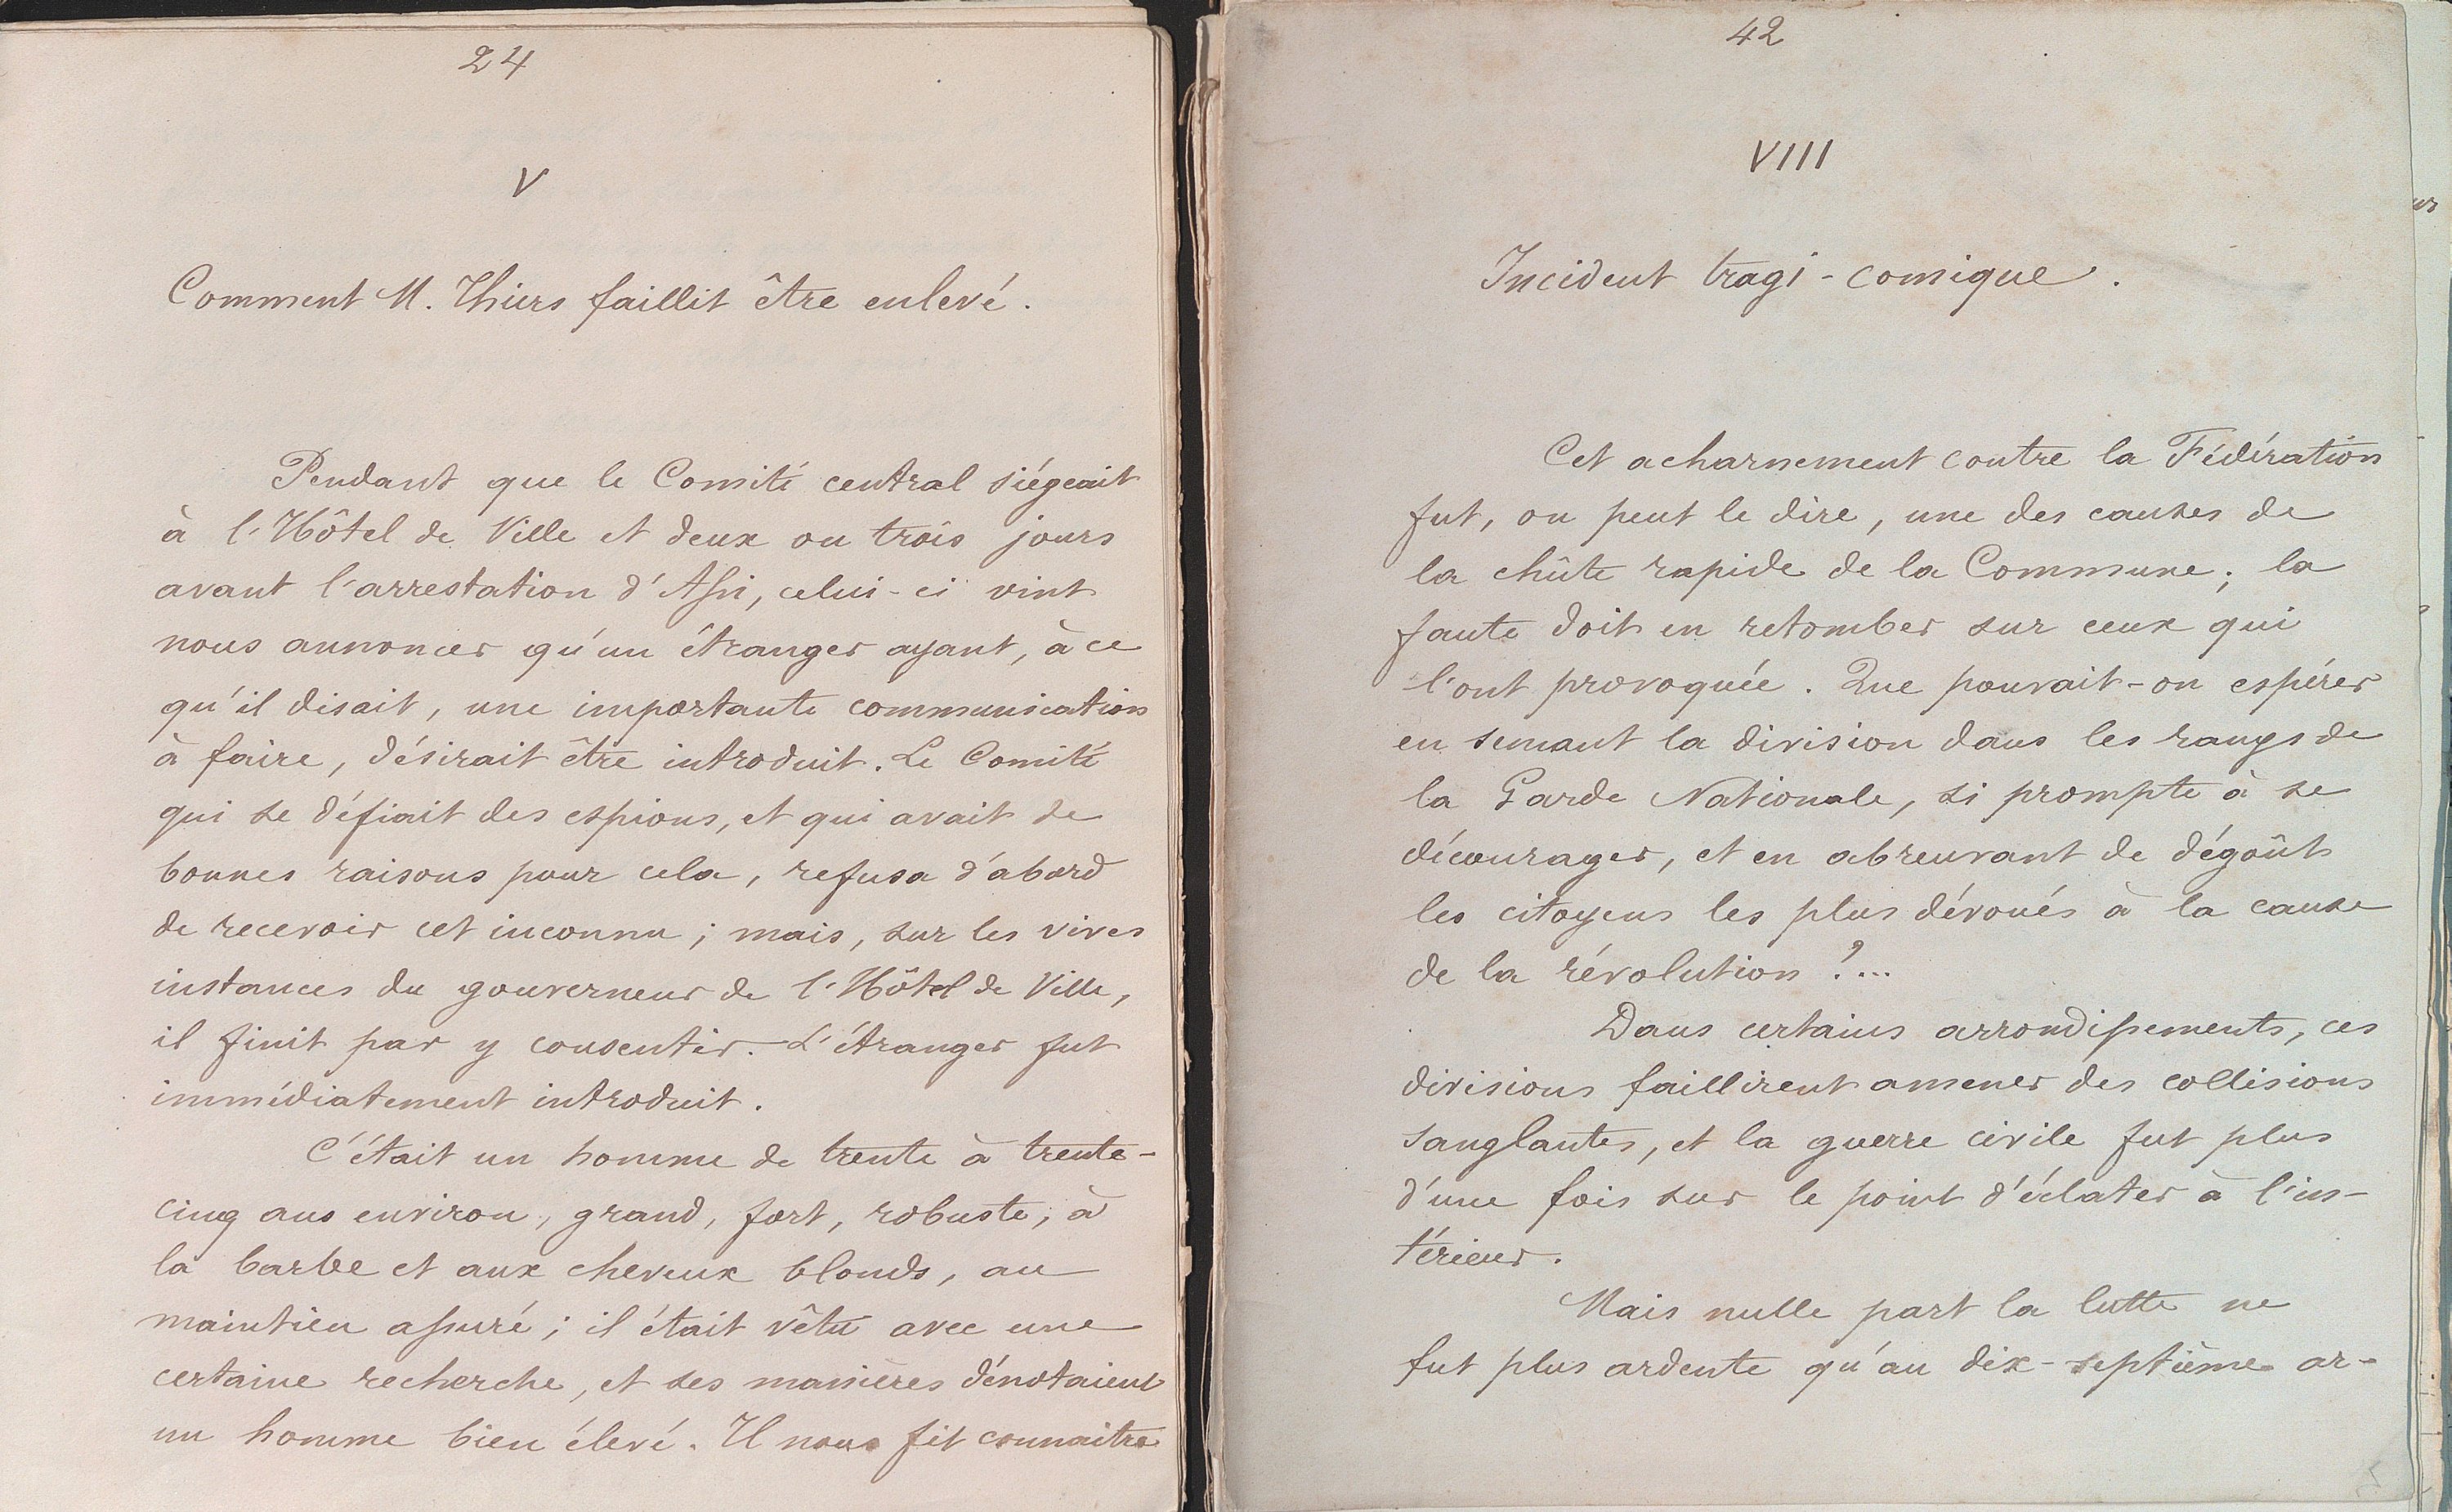 24
V
Comment M. Thiers faillit être enlevé.
Pendant que le Comité central siégeait
à l'Hôtel de Ville et deux ou trois jours
avant l'arrestation d'Assi, celui-ci vint
nous annoncer qu'un étranger ayant, à ce
qu'il disait, une importante communication
à faire, désirait être introduit. Le Comité
qui se défiait des espions, et qui avait de
bonnes raisons pour cela, refusa d'abord
de recevoir cet inconnu ; mais, sur les vives
instances du gouverneur de l'Hôtel de Ville,
il finit par y consentir. L'étranger fut
immédiatement introduit.
C'était un homme de trente à trente-
cinq ans environ, grand, fort, robuste, à
la barbe et aux cheveux blonds, au
maintien assuré ; il était vêtu avec une
certaine recherche, et ses manières dénotaient
un homme bien élevé. Il nous fit connaitre
42
VIII
Incident tragi-comique.
Cet acharnement contre la Fédération
fut, on peut le dire, une des causes de
la chûte rapide de la Commune ; la
faute doit en retomber sur ceux qui
l'ont provoquée. Que pouvait-on espérer
en semant la division dans les rangs de
la Garde Nationale, si prompte à se
décourager, et en abreuvant de dégoûts
les citoyens les plus dévoués à la cause
de la révolution ?...
Dans certains arrondissements, ces
divisions faillirent amener des collisions
sanglantes, et la guerre civile fut plus
d'une fois sur le point d'éclater à l'in-
térieur.
Mais nulle part la lutte ne
fut plus ardente qu'au dix-septième ar-